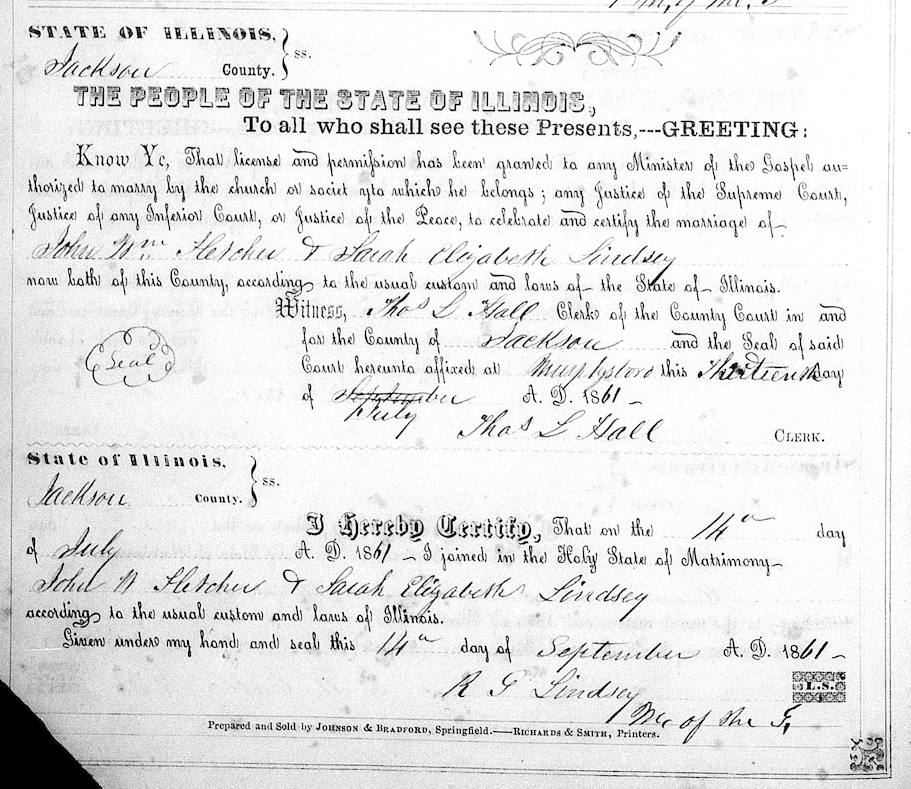 STATE OF ILLINOIS,
Jackson County. } ss.
THE PEOPLE OF THE STATE OF ILLINOIS,
To all who shall see these Presents,---GREETING:
Know Ye, That license and permission has been granted to any Minister of the Gospel au-
thorized to marry by the church or societ yto which he belongs; any Justice of the Supreme Court,
Justice of any Inferior Court, or Justice of the Peace, to celebrate and certify the marriage of
John Wm Fletcher & Sarah Elizabeth Lindsey
now both of this County, according to the usual custom and laws of the State of Illinois.
Witness, Thos L Hall Clerk of the County Court in and
for the County of Jackson and the Seal of said
Seal
Court hereunto affixed at Murphysboro this Thirteenth day
of September A. D. 1861 -
July
Thos L Hall CLERK.
State of Illinois,
Jackson County. } ss.
I Hereby Certify, That on the 14th day
of July A. D. 1861 - I joined in the Holy State of Matrimony
John W Fletcher & Sarah Elizabeth Lindsey
according to the usual custom and laws of Illinois.
Given under my hand and seal this 14th day of September A. D. 1861 -
R G Lindsey L.S.
of the
Prepared and Sold by JOHNSON & BRADFORD, Springfield.——RICHARDS & SMITH, Printers.